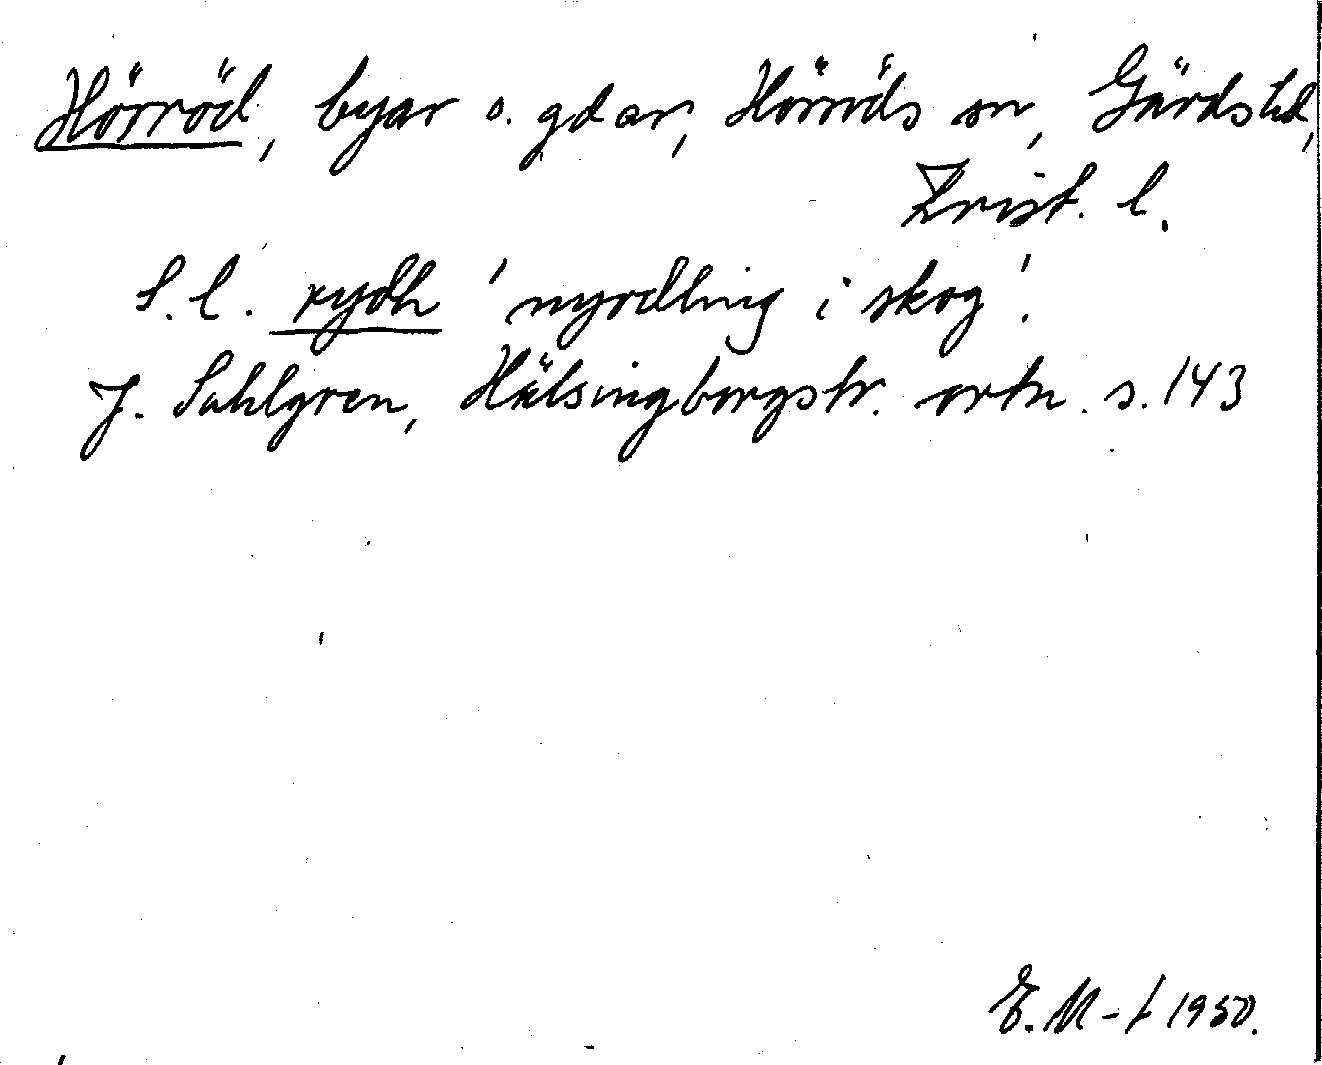 Hörröd, byar o. gdar, Hörröds sn, Gärds hd,
Krist. l.
S. l. rydh 'nyodling i skog'.
J. Sahlgren, Hälsingborgstr. ortn. s. 143
E. M-t 1950.